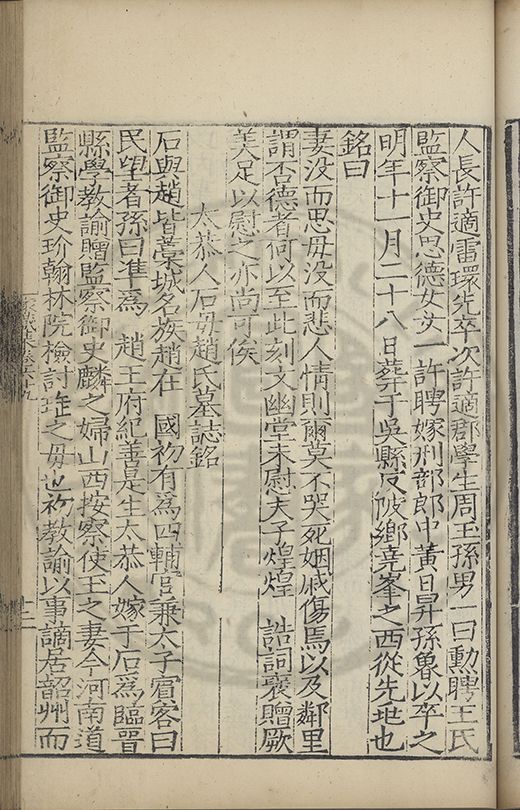 人長許適雷環先卒次許適郡學生周玉孫男一曰勳聘王氏
監察御史思德女女一許聘嫁刑部郎中黃日昇孫魯以卒之
明年十一月二十八日葬于吳縣皮陂鄉堯峯之西從先兆也
銘曰
妻没而思毋没而悲人情則爾莫不哭死姻戚傷焉以及鄰里
謂否德者何以至此刻文幽堂未慰夫子煌煌 誥詞褒贈厥
美足以慰之亦尚可俟
太恭人石毋趙氏墓誌銘
石與趙皆藁城名族趙在 國初有為四輔官兼太子賓客曰
民望者孫曰準為 趙王府紀善是生太恭人嫁于石為臨晋
縣學教諭贈監察御史麟之婦山西按察使玉之妻今河南道
監察御史玠翰林院檢討珤之毋也初教諭以事謫居韶州而